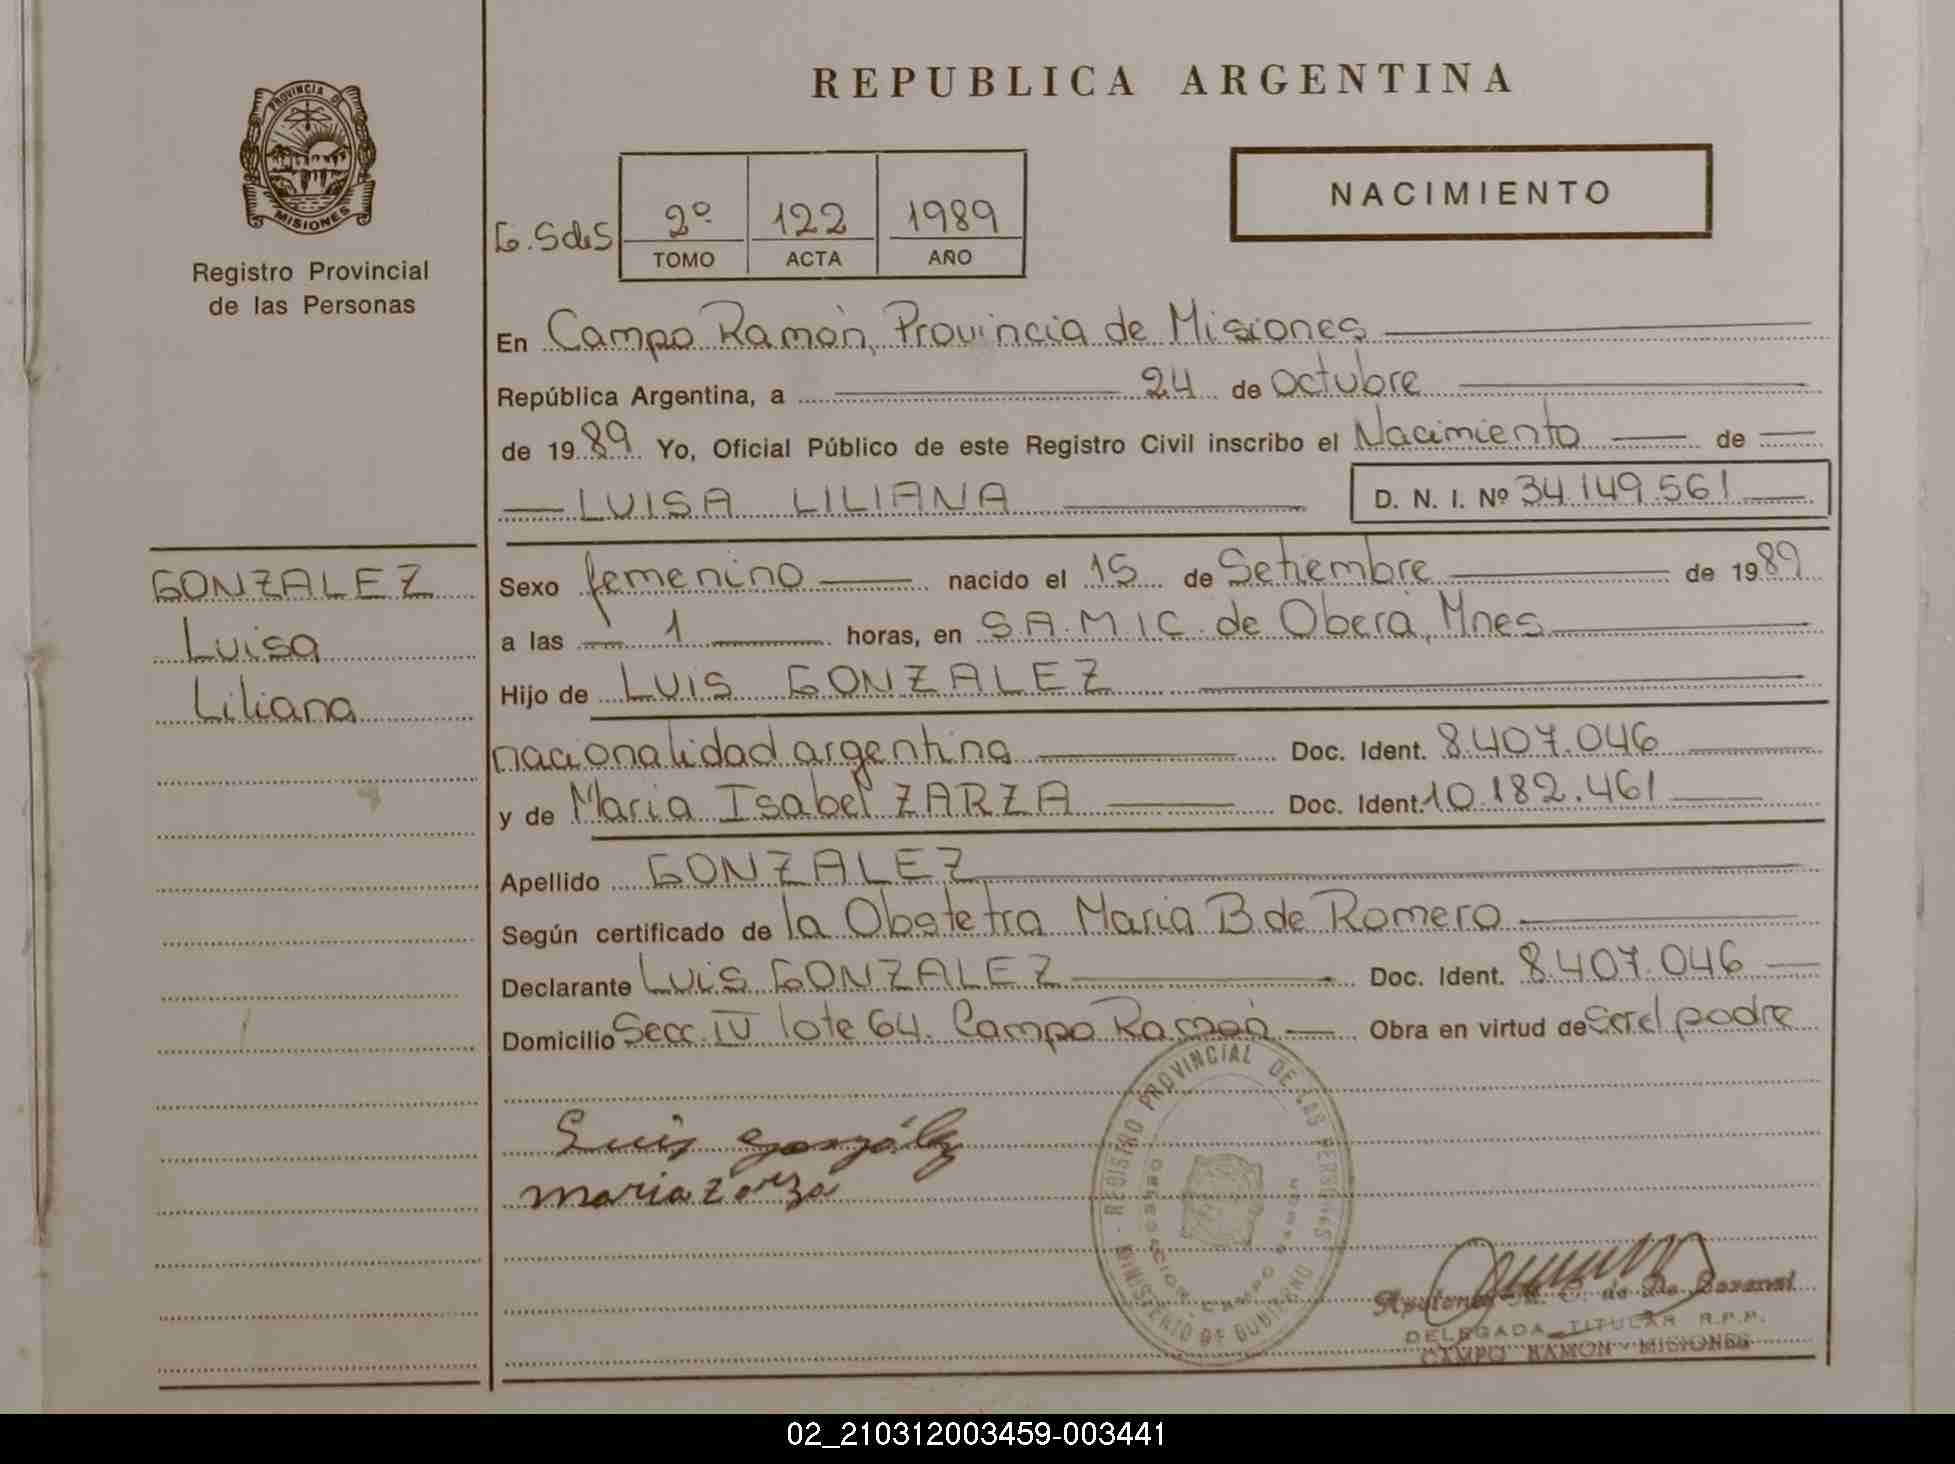 REPUBLICA ARGENTINA
PROVINCIA DE
MISIONES
Registro Provincial
de las Personas
NACIMIENTO
2º 122 1989
TOMO ACTA AÑO
En Campo Ramón, Provincia de Misiones
República Argentina, a 24 de Octubre
de 1989 Yo, Oficial Público de este Registro Civil inscribo el Nacimiento de
LUISA LILIANA D. N. I. Nº 34.149.561
GONZALEZ
Luisa
Liliana
Sexo femenino nacido el 15 de Setiembre de 1989
a las 1 horas, en S.A.M.I.C. de Oberá, Mnes
Hijo de LUIS GONZALEZ
nacionalidad argentina Doc. Ident. 8.407.046
y de Maria Isabel ZARZA Doc. Ident. 10.182.461
Apellido GONZALEZ
Según certificado de la Obstetra Maria B de Romero
Declarante LUIS GONZALEZ Doc. Ident. 8.407.046
Domicilio Secc. IV lote 64. Campo Ramón Obra en virtud de ser el padre
Luis González
maria zarza
REGISTRO PROVINCIAL DE LAS PERSONAS
MINISTERIO DE GOBIERNO
CAMPO RAMON
DELEGADA TITULAR R.P.P.
CAMPO RAMON - MISIONES
02_210312003459-003441